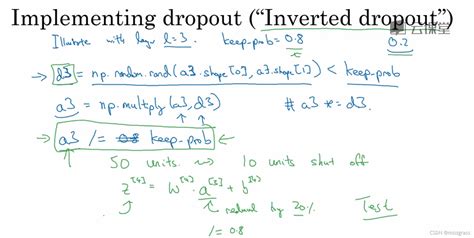 Implementing dropout ("Inverted dropout")
云课堂
Illustrate with layer l=3. keep-prob = 0.8 0.2
→ d3 = np.random.rand(a3.shape[0], a3.shape[1]) < keep-prob
a3 = np.multiply(a3, d3) # a3 *= d3.
→ a3 /= 0.8 keep-prob ←
50 units. ⇝ 10 units shut off
z^[4] = W^[4] · a^[3] + b^[4]
reduced by 20%. Test
/= 0.8